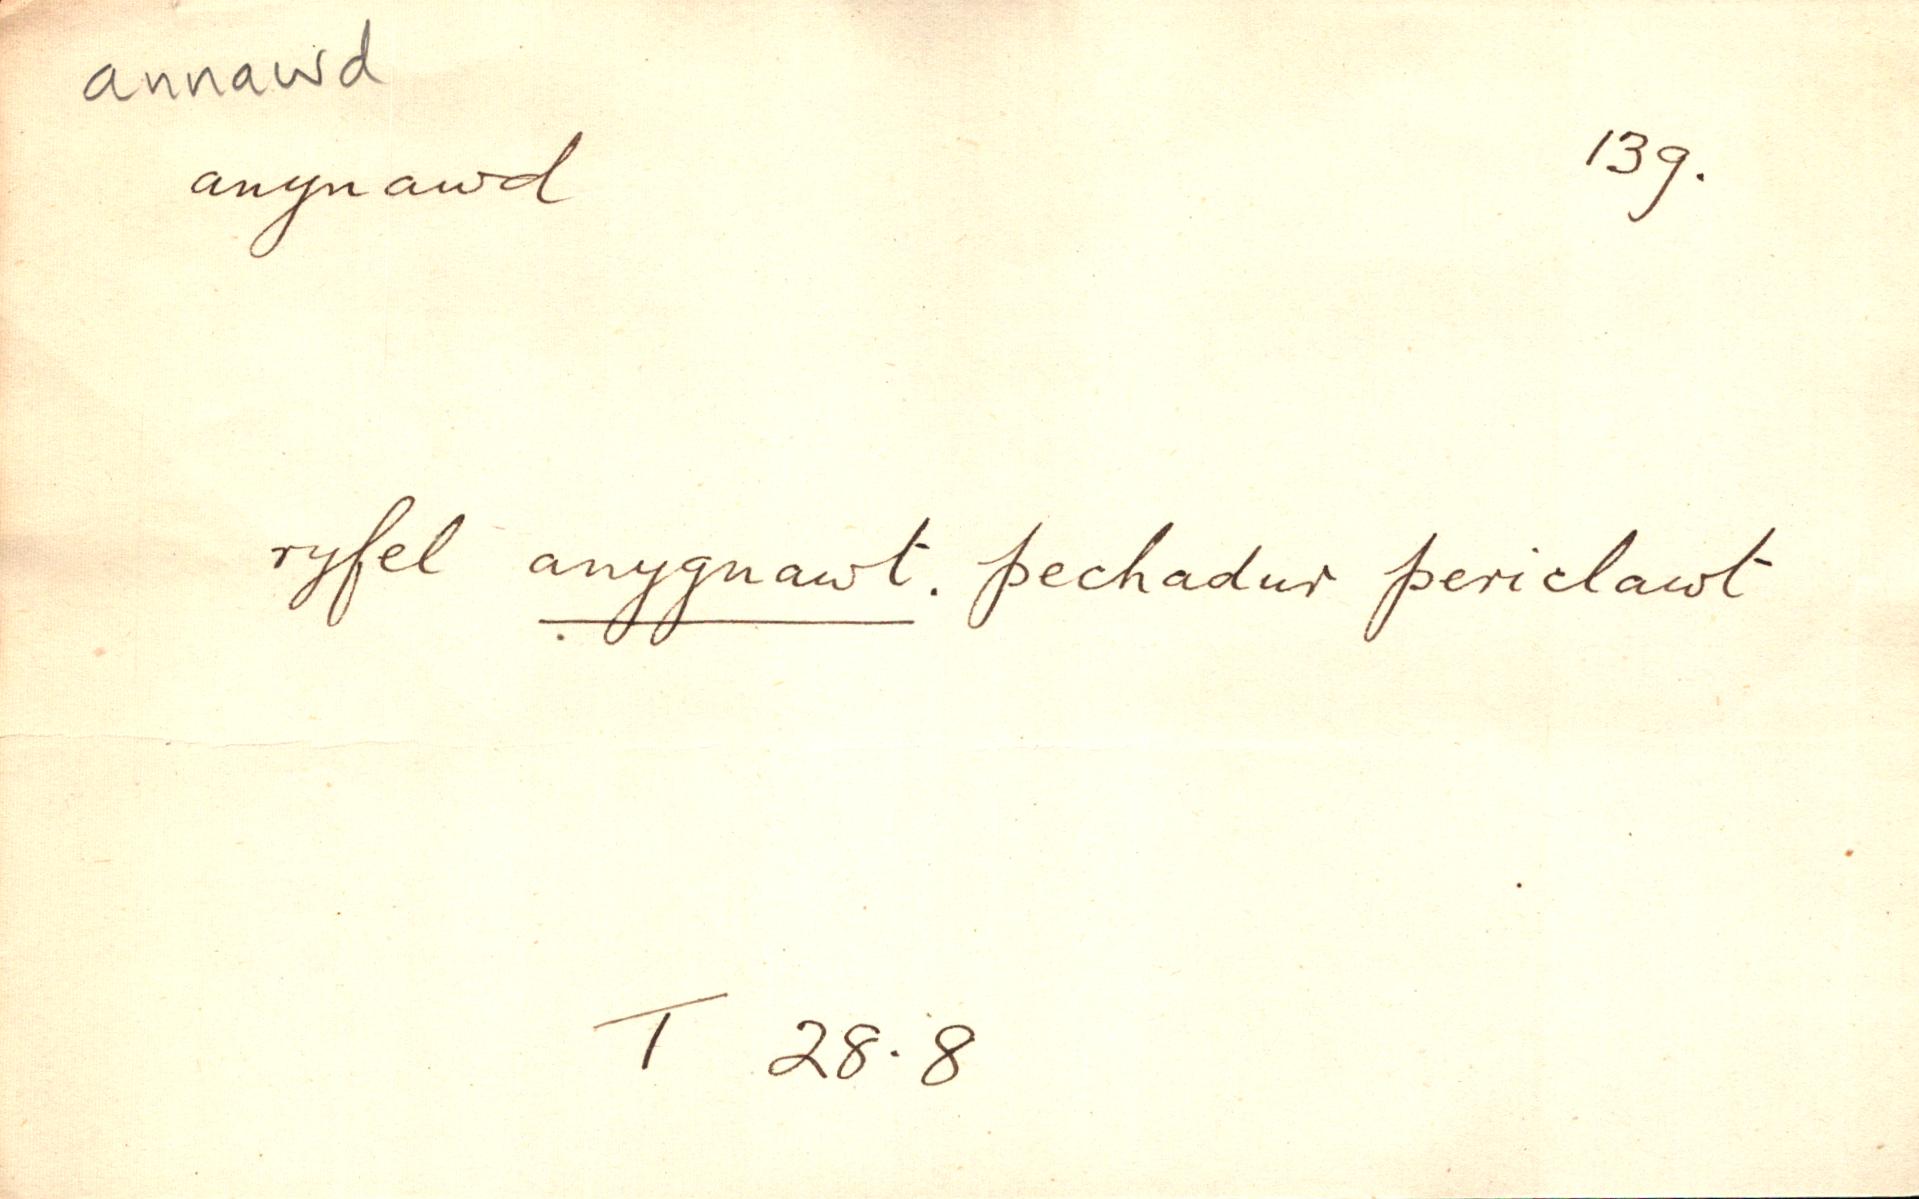 annawd
anynawd 13g.
ryfel anygnawt. pechadur periclawt
T 28.8